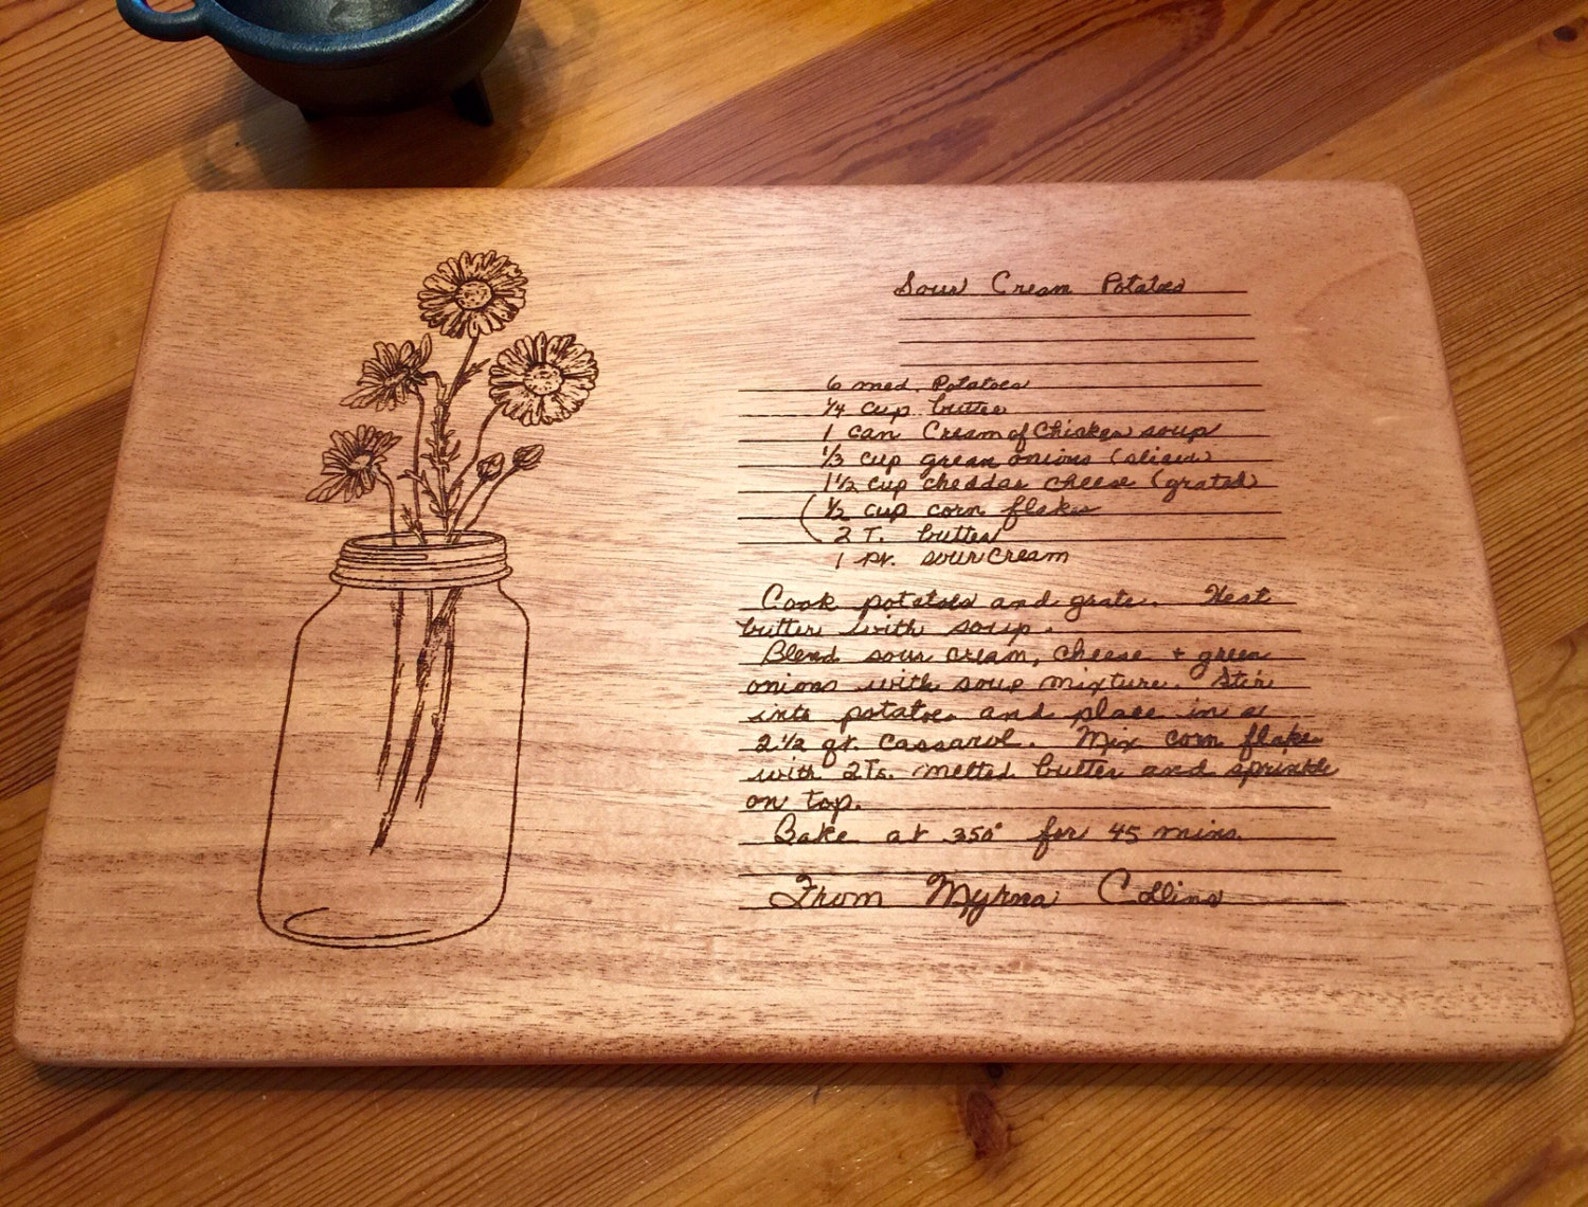 Sour Cream Potatoes
6 med. Potatoes
1/4 cup butter
1 can Cream of Chicken soup
1/3 cup green onions (sliced)
1 1/2 cup cheddar cheese (grated)
(1/2 cup corn flakes
2 T. butter
1 pt. sour cream
Cook potatoes and grate. Heat
butter with soup.
Blend sour cream, cheese + green
onions with soup mixture. Stir
into potatoes and place in a
2 1/2 qt. cassarol. Mix corn flakes
with 2Ts. melted butter and sprinkle
on top.
Bake at 350° for 45 mins.
From Myrna Collins